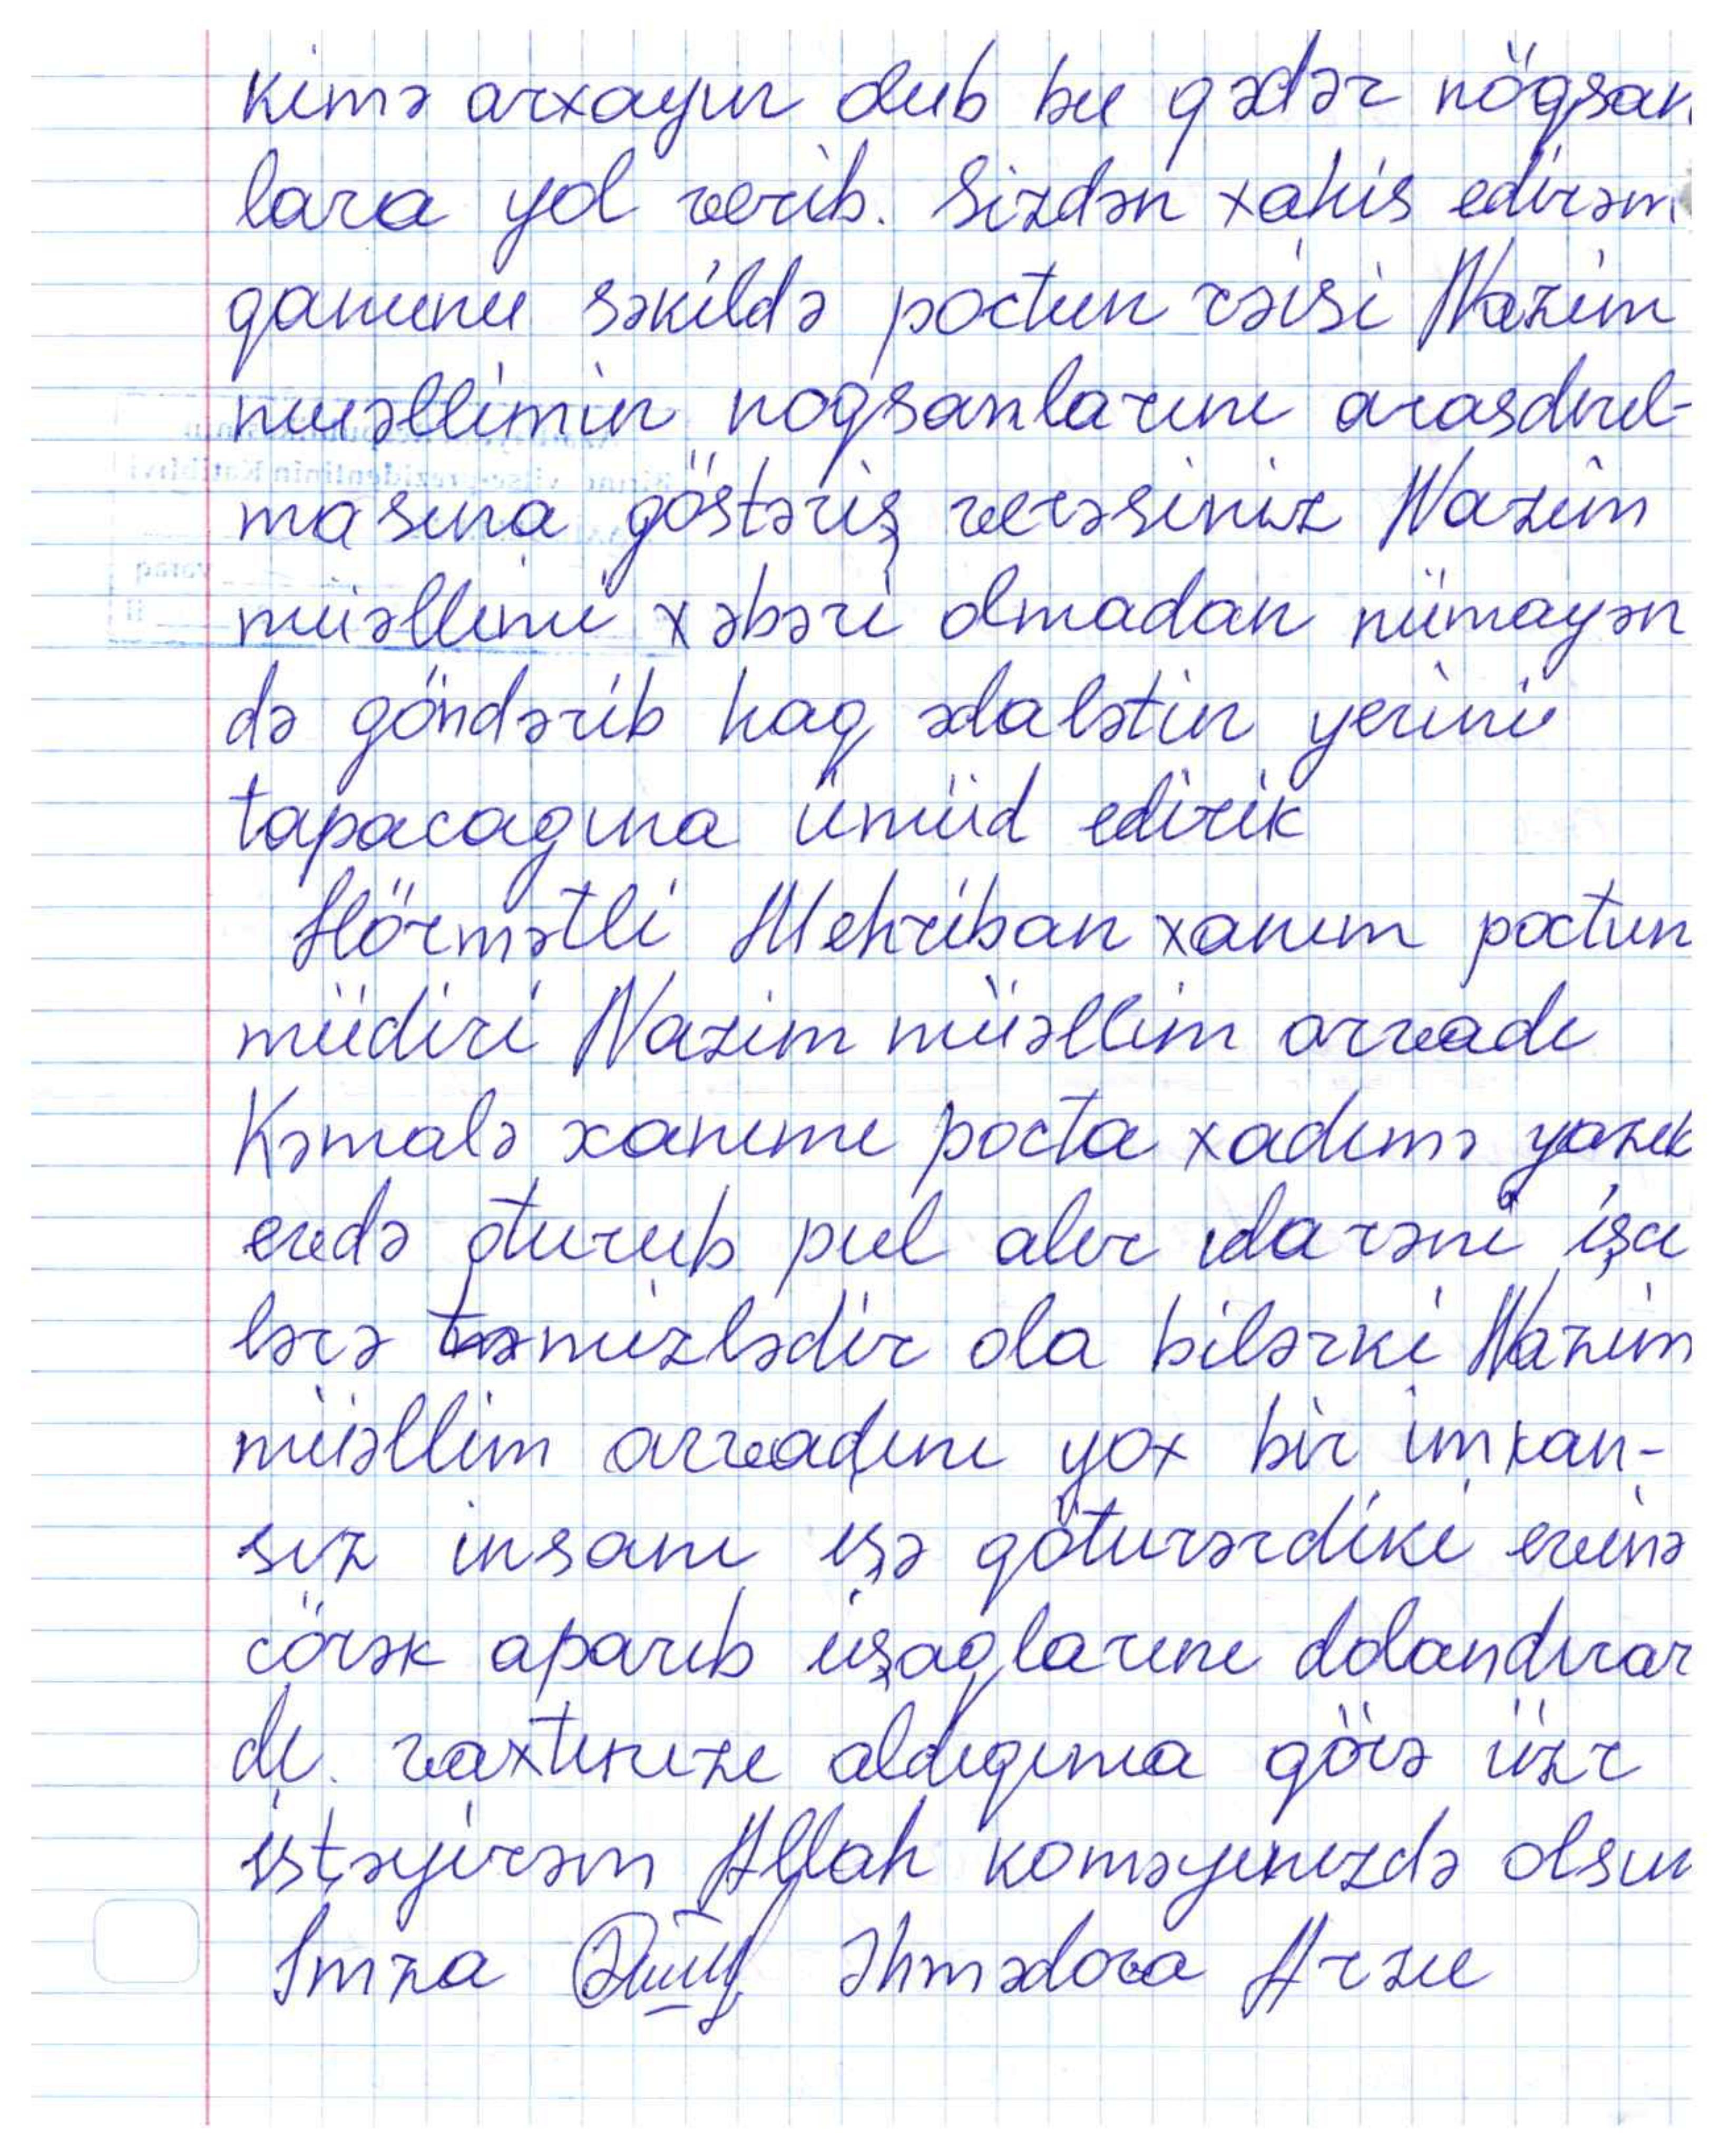 kimə arxayın olub bu qədər nöqsan
lara yol verib. Sizdən xahis edirəm
qanunu səkildə poctun rəisi Nazim
muəllimin noqsanlarını arasdırıl-
masına göstəriş verəsiniz Nazim
müəllimi xəbəri olmadan nümayən
də göndərib haq ədalətin yerini
tapacagına ümüid edirik
Hörmətli Mehriban xanım poctun
müdiri Nazim müəllim arvadı
Kəmalə xanımı pocta xadimə yazıb
evdə oturub pul alır idarəni işci
lərə təmizlədir ola bilərki Nazim
müəllim arvadını yox bir imkan-
sız insanı işə götürərdiki evinə
cörək aparıb uşaqlarını dolandırar
dı. vaxtınızı aldıgıma görə üzr
istəyirəm Allah koməyinizdə olsun
İmza Əhmədova Arzu
Birinci vitse-prezidentinin Katibliyi
vərəq